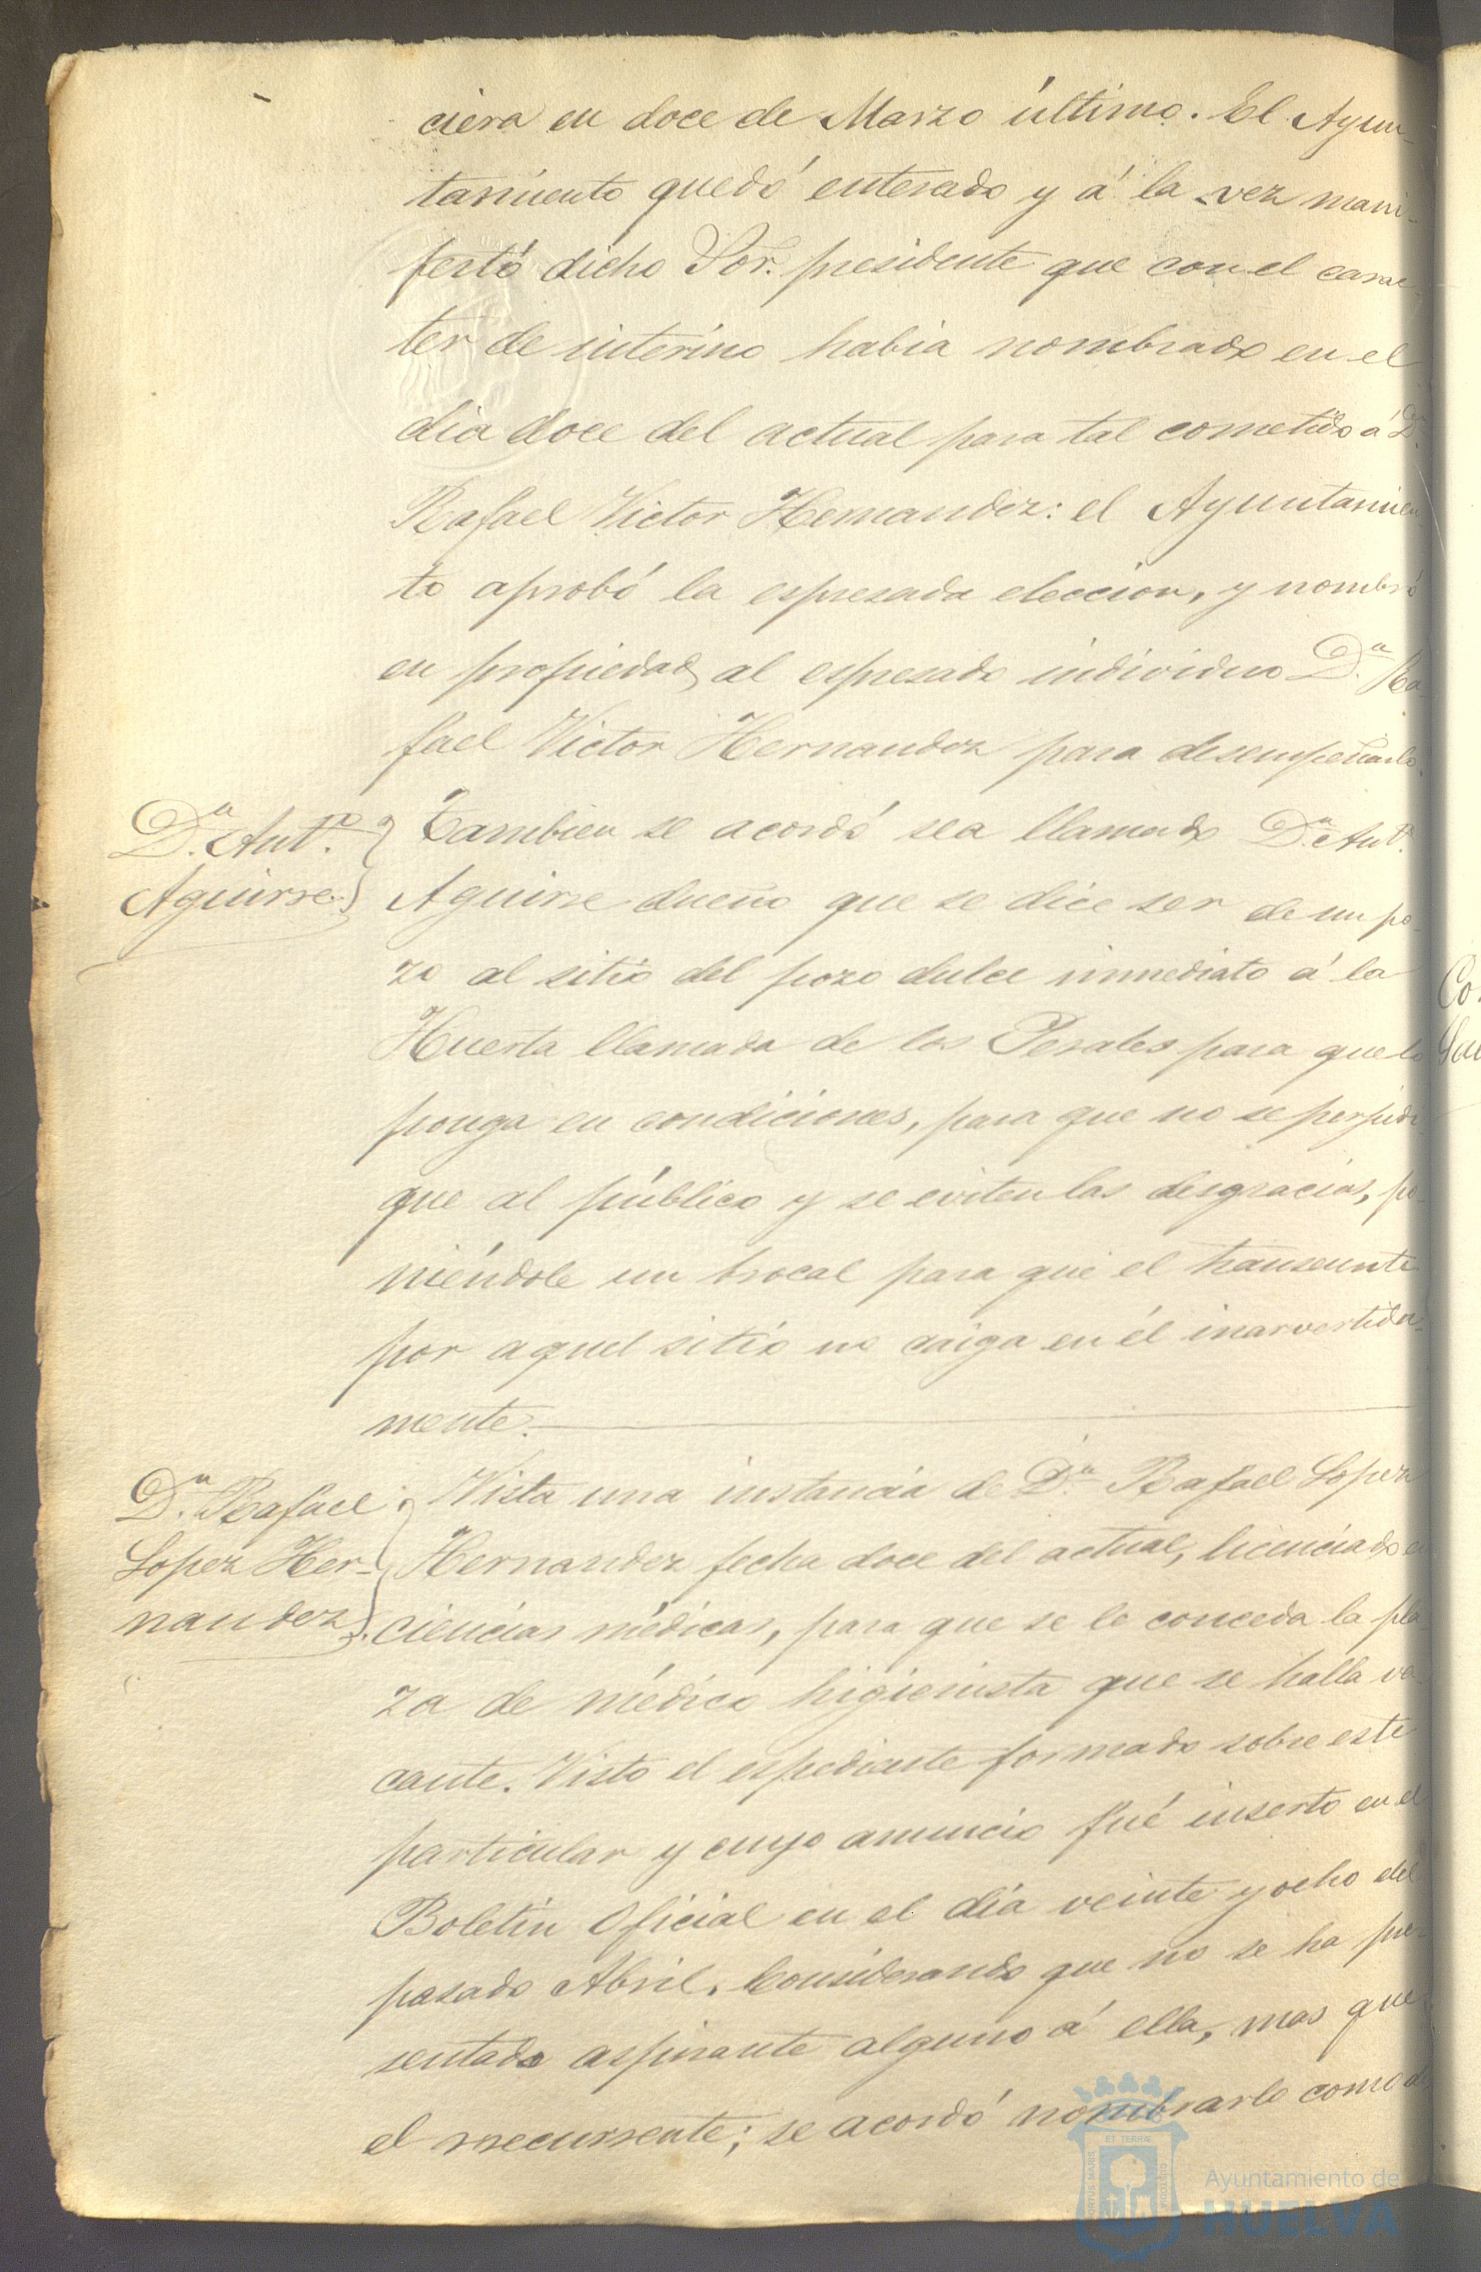 ciera en doce de Marzo último. El Ayun-
tamiento quedó enterado y á la vez mani-
festó dicho Sor. presidente que con el carac-
ter de interino habia nombrado en el
dia doce del actual para tal cometido á Dn.
Rafael Victor Hernandez: el Ayuntamien
to aprobó la espresada eleccion, y nombró
en propiedad al espresado individuo Dn. Ra
fael Victor Hernandez para desempeñarlo.
Dn. Antº.
Aguirre
Tambien se acordó sea llamado Dn. Antº.
Aguirre dueño que se dice ser de un po-
zo al sitio del pozo dulce inmediato á la
Huerta llamada de los Perales para que lo
ponga en condiciones, para que no se perjudi-
que al público y se eviten las desgracias, po-
niéndole un brocal para que el transeunte
por aquel sitio no caiga en él inarvertida-
mente.
Dn. Rafael
Lopez Her-
nandez.
Vista una instancia de Dn. Rafael Lopez
Hernandez fecha doce del actual, licenciado en
ciencias médicas, para que se le conceda la pla
za de médico higienista que se halla va-
cante. Visto el espediente formado sobre este
particular y cuyo anuncio fué inserto en el
Boletin Oficial en el dia veinte y ocho del
pasado Abril. Considerando que no se ha pre-
sentado aspirante alguno á ella, mas que
el recurrente; se acordó nombrarlo como d
Co.
Ayuntamiento de
HUELVA